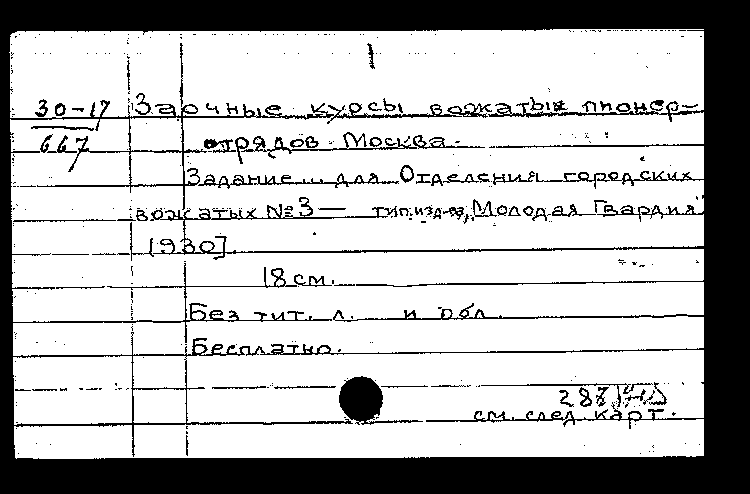 1
30-17 Заочные курсы вожатых пионер-
667 отрядов. Москва.
Задание... для Отделения городских
вожатых № 3 — тип. изд-ва „Молодая Гвардия"
1930].
18 см.
Без тит. л. и обл.
Бесплатно.
см. след. карт.